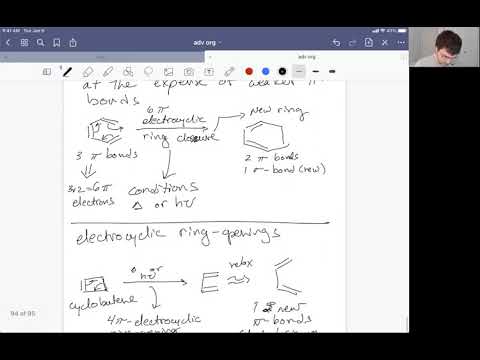 9:41 AM Sun Jan 9
adv org
adv org
at the expense of weaker π-
bonds
6π
electrocyclic
ring closure
new ring
3 π bonds
2 π bonds
1 σ-bond (new)
3x2=6π
electrons
conditions
Δ or hν
electrocyclic ring-openings
Δ or
hν
relax
cyclobutene
4π-electrocyclic
1 new
π-bonds
94 of 95